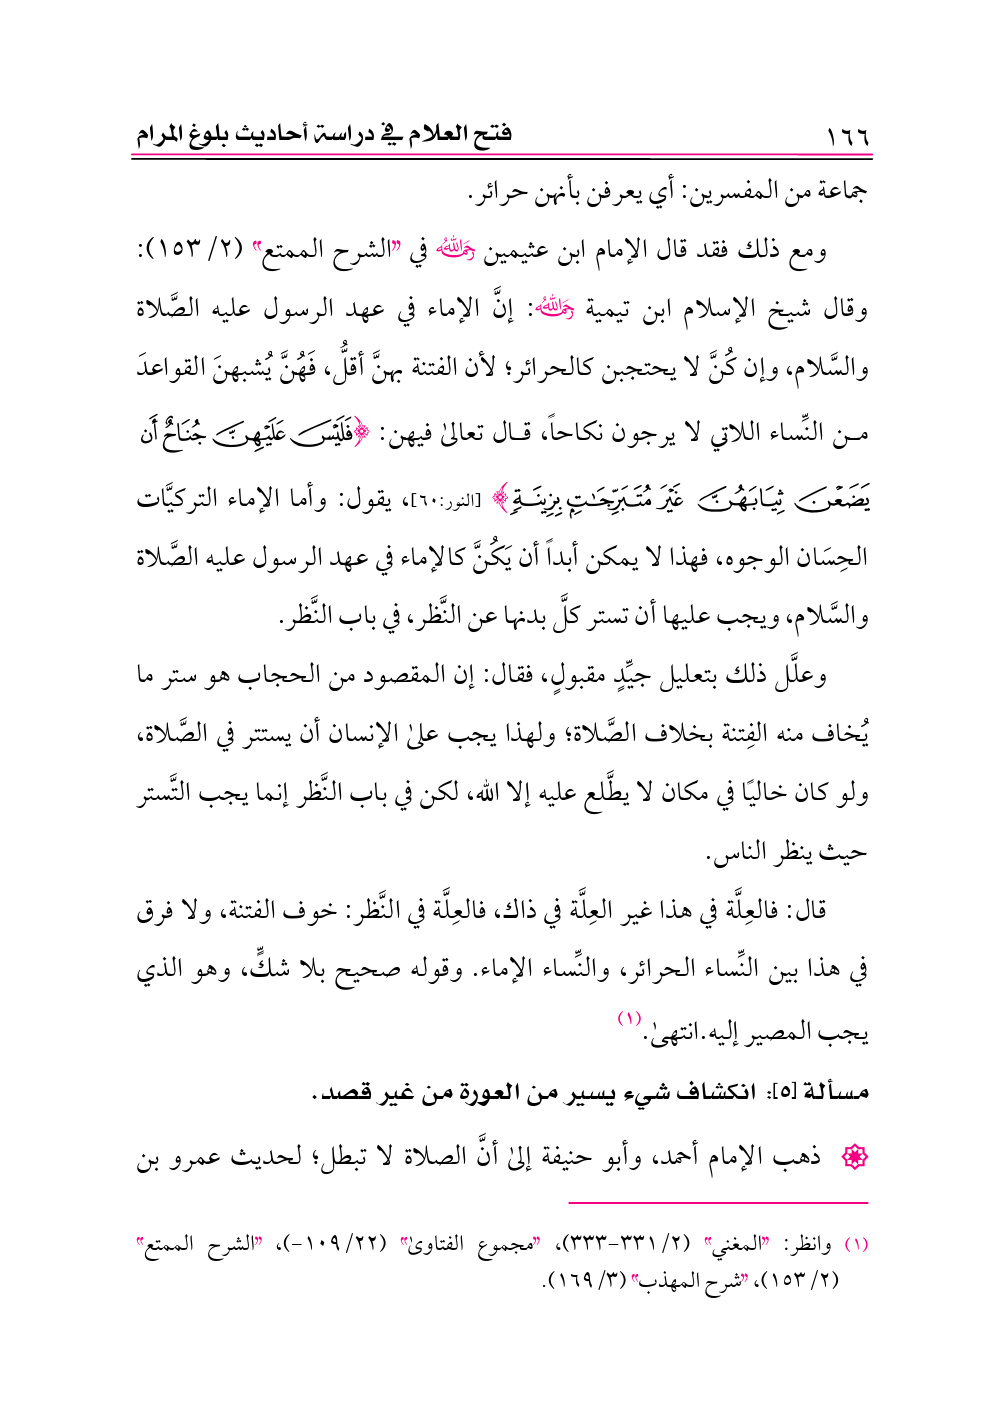 ١٦٦ فتح العلام في دراسة أحاديث بلوغ المرام
جماعة من المفسرين: أي يعرفن بأنهن حرائر.
ومع ذلك فقد قال الإمام ابن عثيمين رحمه الله في "الشرح الممتع" (٢/ ١٥٣):
وقال شيخ الإسلام ابن تيمية رحمه الله: إنَّ الإماء في عهد الرسول عليه الصَّلاة
والسَّلام، وإن كُنَّ لا يحتجبن كالحرائر؛ لأن الفتنة بهنَّ أقلُّ، فَهُنَّ يُشبهنَ القواعدَ
مـن النِّساء اللاتي لا يرجون نكاحاً، قـال تعالىٰ فيهن: ﴿فَلَيْسَ عَلَيْهِنَّ جُنَاحٌ أَن
يَضَعْنَ ثِيَابَهُنَّ غَيْرَ مُتَبَرِّجَاتٍ بِزِينَةٍ﴾ [النور:٦٠]، يقول: وأما الإماء التركيَّات
الحِسَان الوجوه، فهذا لا يمكن أبداً أن يَكُنَّ كالإماء في عهد الرسول عليه الصَّلاة
والسَّلام، ويجب عليها أن تستر كلَّ بدنها عن النَّظر، في باب النَّظر.
وعلَّل ذلك بتعليل جيِّدٍ مقبولٍ، فقال: إن المقصود من الحجاب هو ستر ما
يُخاف منه الفِتنة بخلاف الصَّلاة؛ ولهذا يجب علىٰ الإنسان أن يستتر في الصَّلاة،
ولو كان خاليًا في مكان لا يطَّلع عليه إلا الله، لكن في باب النَّظر إنما يجب التَّستر
حيث ينظر الناس.
قال: فالعِلَّة في هذا غير العِلَّة في ذاك، فالعِلَّة في النَّظر: خوف الفتنة، ولا فرق
في هذا بين النِّساء الحرائر، والنِّساء الإماء. وقوله صحيح بلا شكٍّ، وهو الذي
يجب المصير إليه.انتهىٰ.(١)
مسألة [٥]: انكشاف شيء يسير من العورة من غير قصد.
ذهب الإمام أحمد، وأبو حنيفة إلىٰ أنَّ الصلاة لا تبطل؛ لحديث عمرو بن
(١) وانظر: "المغني" (٢/ ٣٣١-٣٣٣)، "مجموع الفتاوىٰ" (٢٢/ ١٠٩-)، "الشرح الممتع"
(٢/ ١٥٣)، "شرح المهذب" (٣/ ١٦٩).